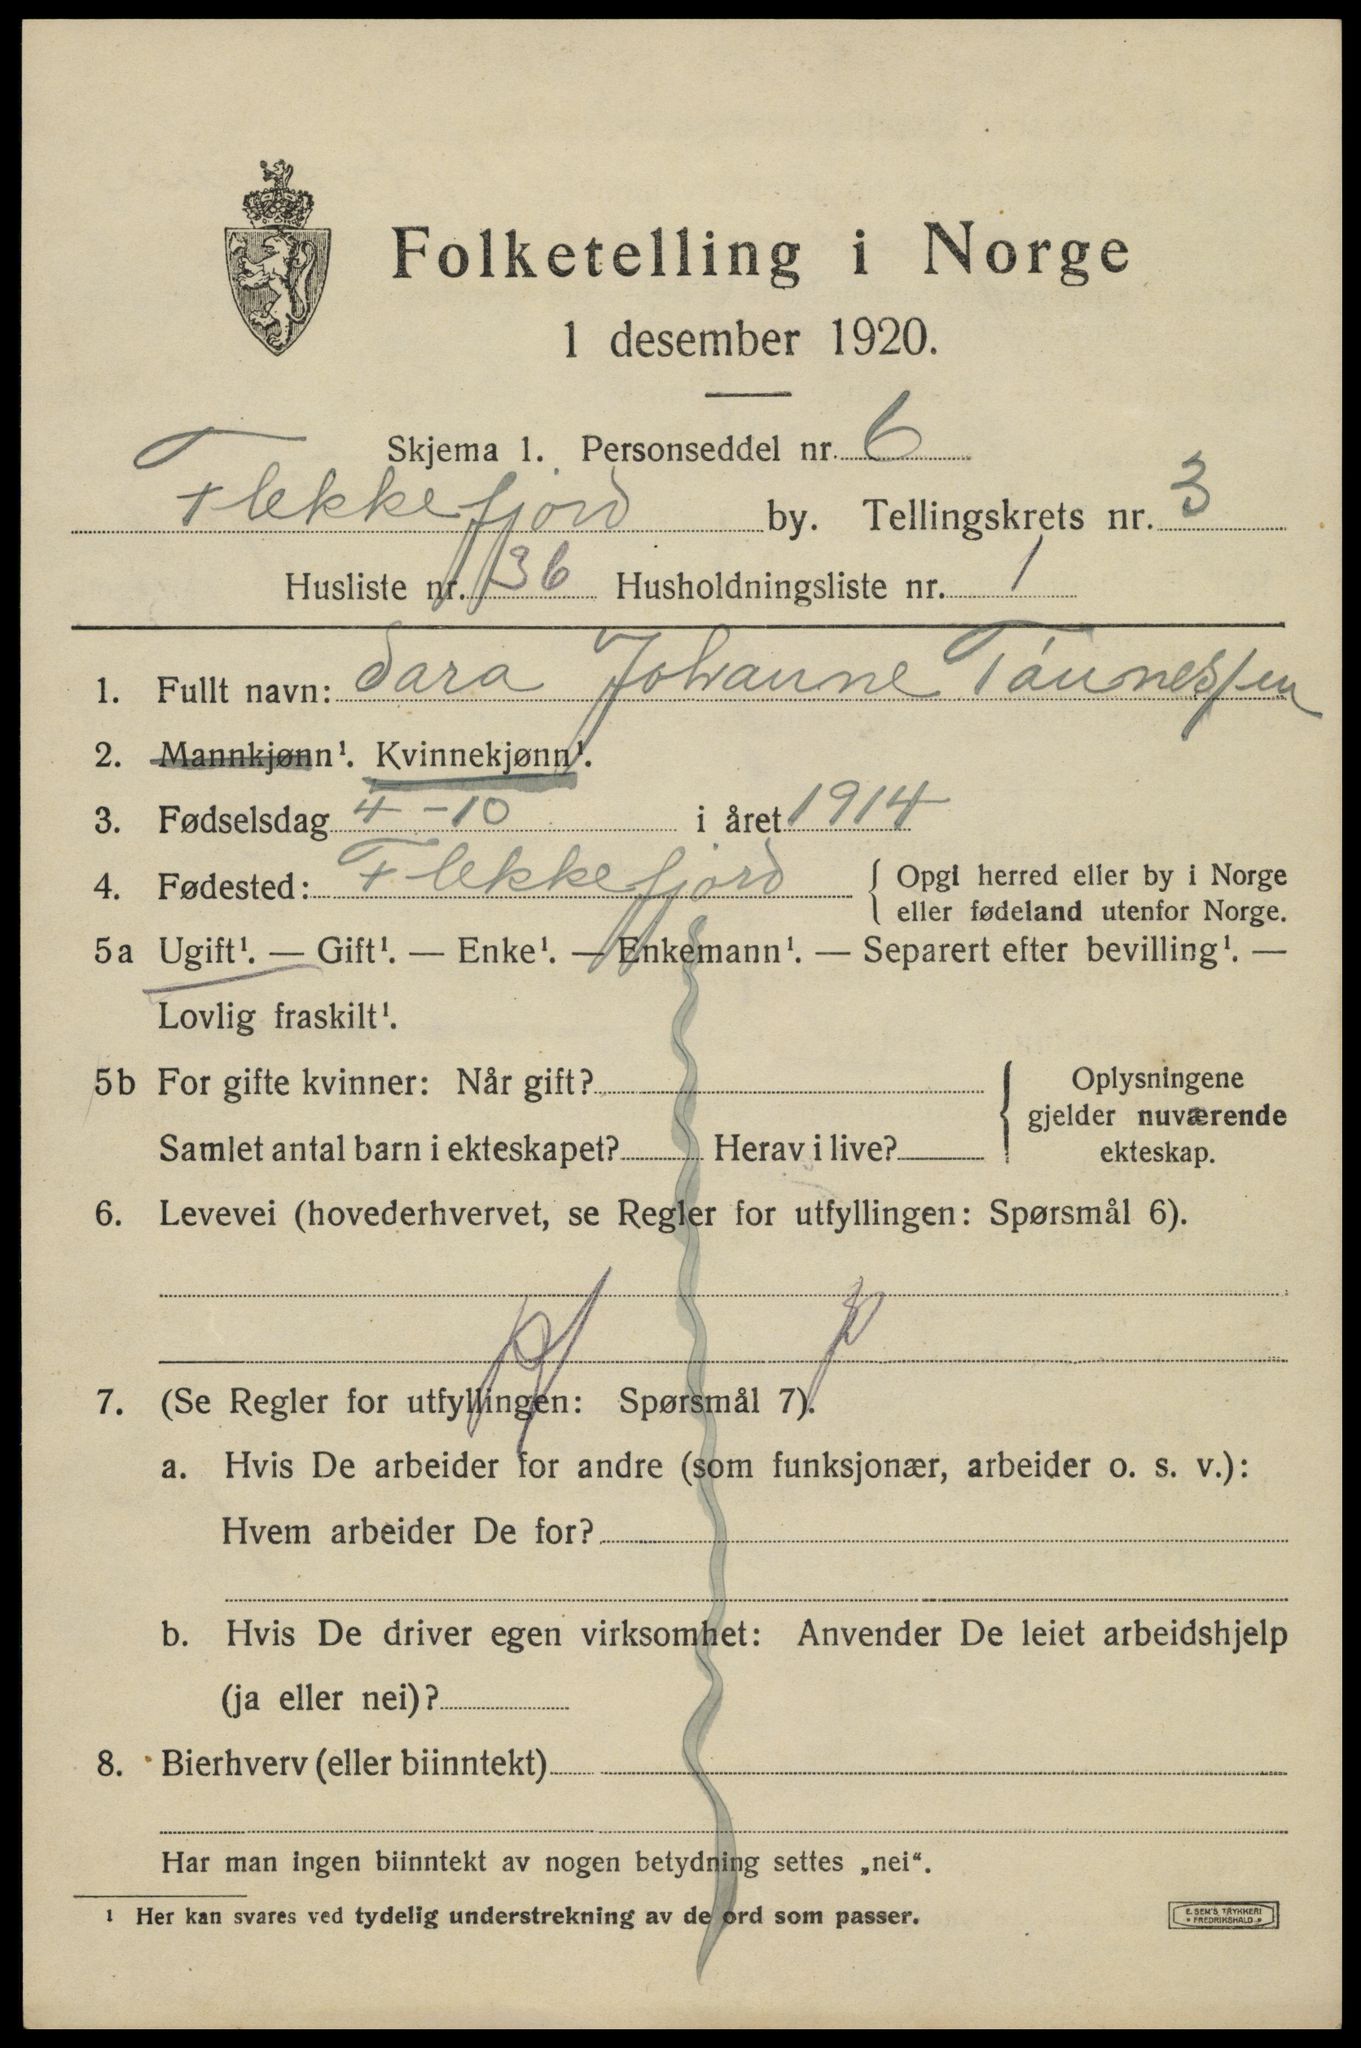 Folketelling i Norge
1 desember 1920.
Skjema 1. Personseddel nr. 6
Flekkefjord by. Tellingskrets nr. 3
Husliste nr. 36 Husholdningsliste nr. 1
1. Fullt navn: Sara Johanne Tónnessen
2. Mannkjønn¹. Kvinnekjønn¹.
3. Fødselsdag 4-10 i året 1914
4. Fødested: Flekkefjord { Opgi herred eller by i Norge
eller fødeland utenfor Norge.
5a Ugift¹. — Gift¹. — Enke¹. — Enkemann¹. — Separert efter bevilling¹. —
Lovlig fraskilt¹.
5b For gifte kvinner: Når gift? } Oplysningene
gjelder nuværende
Samlet antal barn i ekteskapet? Herav i live? ekteskap.
6. Levevei (hovederhvervet, se Regler for utfyllingen: Spørsmål 6).
7. (Se Regler for utfyllingen: Spørsmål 7).
a. Hvis De arbeider for andre (som funksjonær, arbeider o. s. v.):
Hvem arbeider De for?
b. Hvis De driver egen virksomhet: Anvender De leiet arbeidshjelp
(ja eller nei)?
8. Bierhverv (eller biinntekt)
Har man ingen biinntekt av nogen betydning settes „nei“.
¹ Her kan svares ved tydelig understrekning av de ord som passer.
E. SEM'S TRYKKERI
FREDRIKSHALD